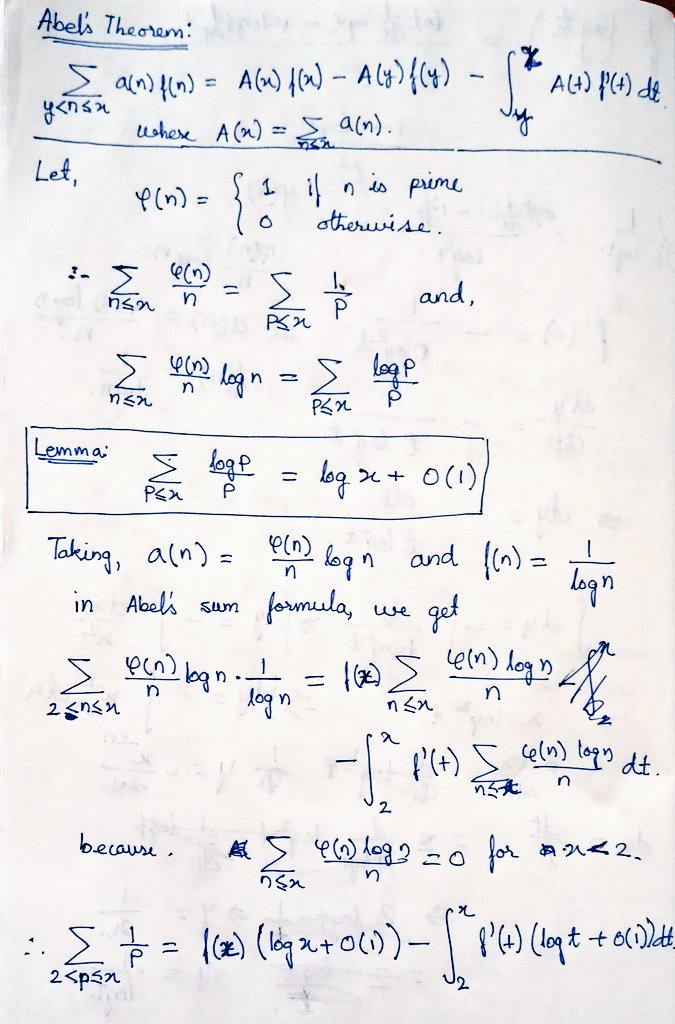 Abel's Theorem:
∑_{y<n≤x} a(n) f(n) = A(x) f(x) – A(y) f(y) – ∫_y^x A(t) f'(t) dt.
where A(x) = ∑_{n≤x} a(n).
Let,
φ(n) = { 1 if n is prime
0 otherwise.
∴ ∑_{n≤x} φ(n)/n = ∑_{P≤x} 1/P and,
∑_{n≤x} φ(n)/n log n = ∑_{P≤x} log P/P
Lemma: ∑_{P≤x} log P/P = log x + O(1)
Taking, a(n) = φ(n)/n log n and f(n) = 1/log n
in Abel's sum formula, we get
∑_{2≤n≤x} φ(n)/n log n · 1/log n = f(x) ∑_{n≤x} φ(n) log n/n
– ∫_2^x f'(t) ∑_{n≤t} φ(n) log n/n dt.
because. ∑_{n≤x} φ(n) log n/n = 0 for x < 2.
∴ ∑_{2≤p≤x} 1/P = f(x) (log x + O(1)) – ∫_2^x f'(t) (log t + O(1)) dt